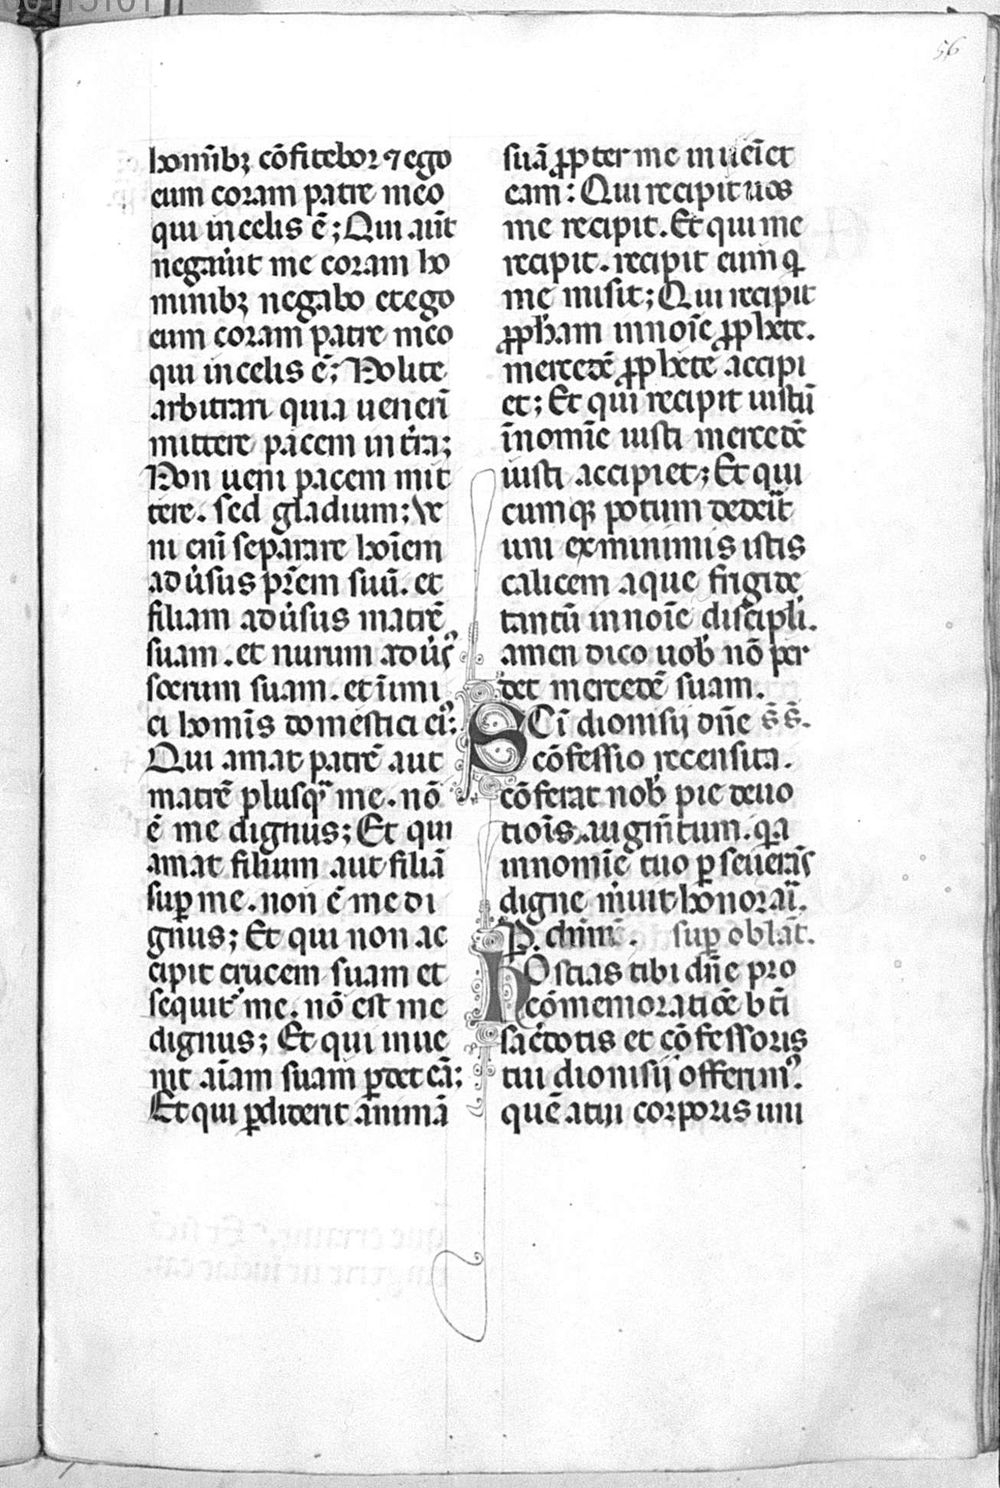 56
hom̄ibꝫ cōfitebor ⁊ ego
eum coram patre meo
qui in celis ē; Qui aūt
negauīt me coram ho
minibꝫ negabo et ego
eum coram patre meo
qui in celis ē; Nolite
arbitrari quia uenerī
mittere pacem in t̄ra;
Non ueni pacem mit
tere. sed gladium; Ve
ni enī separare hoīem
aduſus pr̄em suū. et
filiam aduſus matrē
suam. et nurum aduſꝰ
socrum suam. et īimi
ci homīs domestici eiꝰ:
Qui amat patrē aut
matrē plusqᵃ me. nō
ē me dignus; Et qui
amat filium aut filiā
suꝑ me. non ē me di
gnus; Et qui non ac
cipit crucem suam et
sequit᷑ me. nō est me
dignus; Et qui inue
nit aīam suam ꝑdet eā;
Et qui ꝑdiderit animā
suā ꝓpter me inueīet
eam: Qui recipit uos
me recipit. Et qui me
recipit. recipit eum q̄
me misit; Qui recipit
ꝓpħam in noīe ꝓphete.
mercedē ꝓphete accipi
et; Et qui recipit iustū
ī nomīe iusti mercedē
iusti accipiet; Et qui
cumqꝫ potum dederīt
uni ex minimis istis
calicem aque frigide
tantū in noīe discipli.
amen dico uob̄ nō per
det mercedē suam.
SCī dionisij dn̄e q̄s̄.
cōfessio recensita.
cōferat nob̄ pie deuo
tioīs augm̄tum. qᵃ
in nomīe tuo ꝑseuerās
digne m̄uit honorari.
P. chm̄. suꝑ oblāt.
hOstias tibi dn̄e pro
cōmemoratiōe bt̄i
sac̄dotis et cōfessoris
tui dionisij offerimꝰ.
quē a tui corporis uni